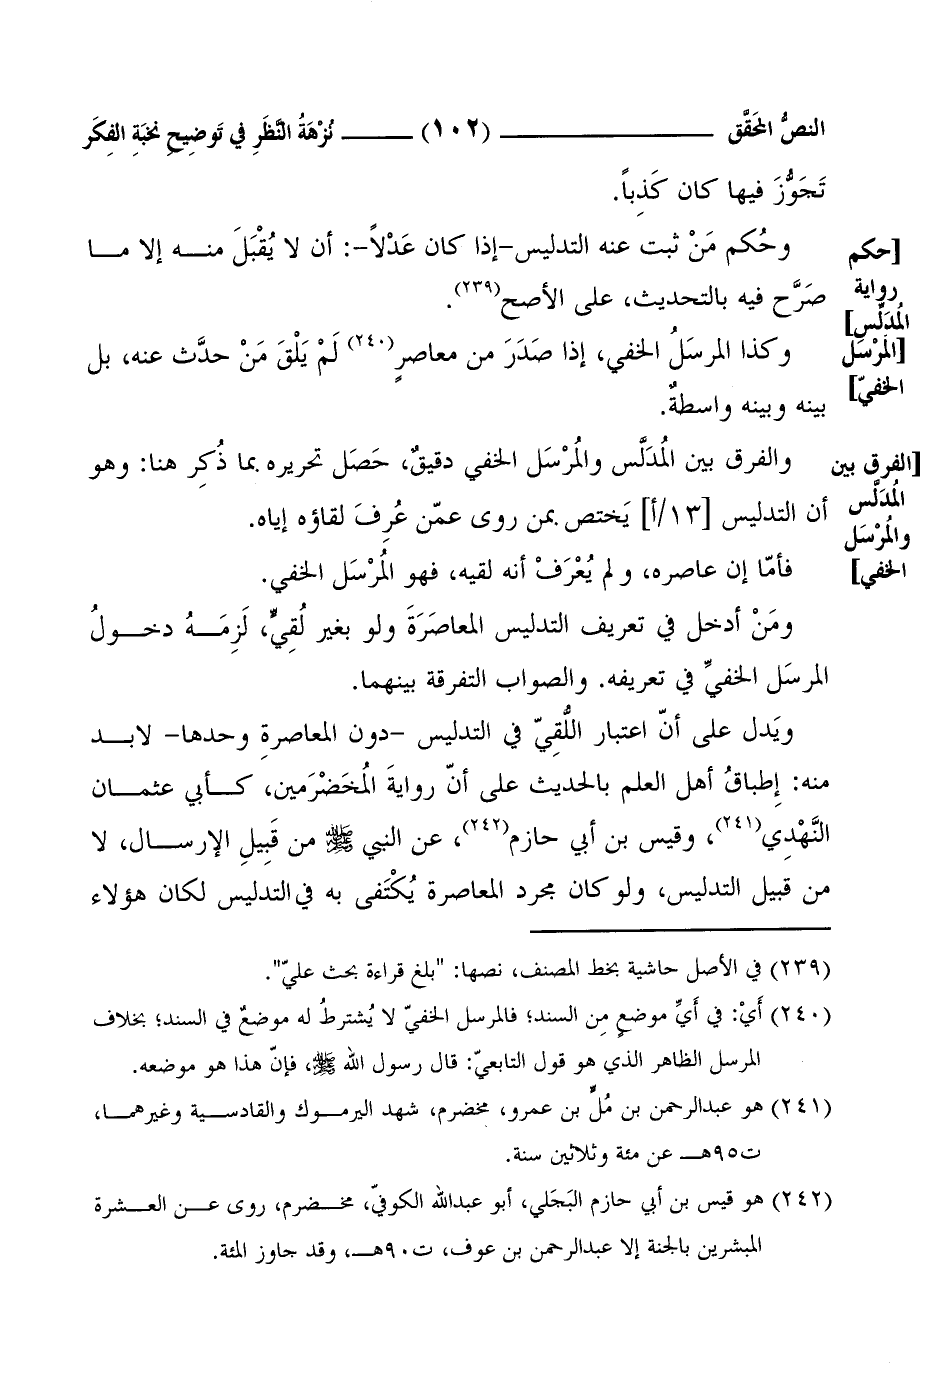 النصُّ المحَقَّق ـــــــــ (١٠٢) ـــــــــ نُزْهَةُ النَّظَرِ في تَوضِيحِ نخبَةِ الفِكَر
تَجَوُّزَ فيها كان كَذِباً.
[حكم
رواية
المُدَلِّسِ]
وحُكم مَنْ ثبت عنه التدليس-إذا كان عَدْلاً-: أن لا يُقْبَلَ منه إلا ما
صَرَّح فيه بالتحديث، على الأصح(٢٣٩).
[المُرْسَل
الخفيّ]
وكذا المرسَلُ الخفي، إذا صَدَرَ من معاصرٍ(٢٤٠) لَمْ يَلْقَ مَنْ حدَّث عنه، بل
بينه وبينه واسطةٌ.
[الفرق بين
المُدَلَّس
والمُرْسَل
الخفي]
والفرق بين المُدَلَّس والمُرْسَل الخفي دقيقٌ، حَصَل تحريره بما ذُكِر هنا: وهو
أن التدليس [١٣/أ] يَختص بمن روى عمّن عُرِفَ لقاؤه إياه.
فأمّا إن عاصره، ولم يُعْرَفْ أنه لقيه، فهو المُرْسَل الخفي.
ومَنْ أدخل في تعريف التدليس المعاصَرَةَ ولو بغير لُقِيٍّ، لَزِمَهُ دخولُ
المرسَل الخفيِّ في تعريفه. والصواب التفرقة بينهما.
ويَدل على أنّ اعتبار اللُّقِيّ في التدليس -دون المعاصرةِ وحدها- لابد
منه: إطباقُ أهل العلم بالحديث على أنّ روايةَ المُخَضْرَمين، كأبي عثمان
النَّهْدِي(٢٤١)، وقيس بن أبي حازم(٢٤٢)، عن النبي ﷺ من قَبِيلِ الإرسال، لا
من قبيل التدليس، ولو كان مجرد المعاصرة يُكْتَفى به في التدليس لكان هؤلاء
(٢٣٩) في الأصل حاشية بخط المصنف، نصها: "بلغ قراءة بحث عليّ".
(٢٤٠) أَيْ: في أَيِّ موضعٍ مِن السند؛ فالمرسل الخفيّ لا يُشترطُ له موضعٌ في السند؛ بخلاف
المرسل الظاهر الذي هو قول التابعيّ: قال رسول الله ﷺ، فإنّ هذا هو موضعه.
(٢٤١) هو عبدالرحمن بن مُلّ بن عمرو، مخضرم، شهد اليرموك والقادسية وغيرهما،
ت٩٥هـ عن مئة وثلاثين سنة.
(٢٤٢) هو قيس بن أبي حازم البَجَلي، أبو عبدالله الكوفيّ، مخضرم، روى عن العشرة
المبشرين بالجنة إلا عبدالرحمن بن عوف، ت٩٠هـ، وقد جاوز المئة.